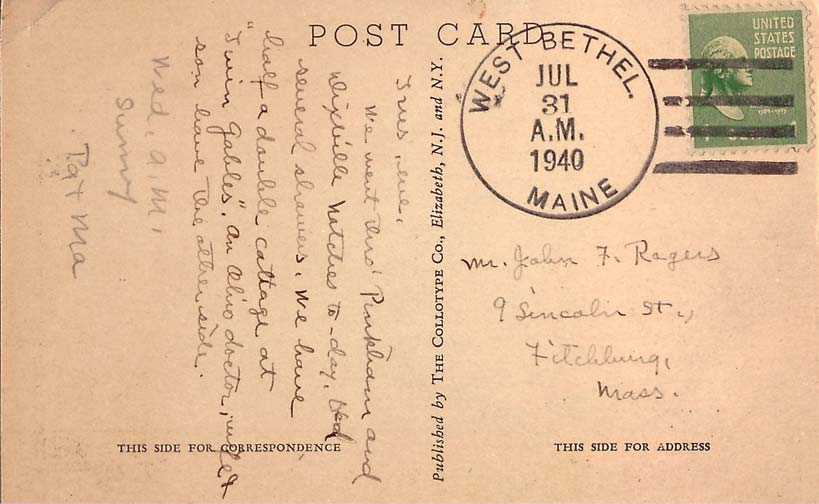 POST CARD
Tues. eve.
We went thro' Pinkham and
Dixville Notches to-day. Had
several showers. We have
half a double cottage at
"Twin Gables". An Ohio doctor, wife &
son have the other side.
Wed. a.m.
Sunny
Pa & Ma
THIS SIDE FOR CORRESPONDENCE
Published by THE COLLOTYPE CO., Elizabeth, N.J. and N.Y.
WEST BETHEL.
JUL
31
A.M.
1940
MAINE
UNITED
STATES
POSTAGE
Mr. John F. Rogers
9 Lincoln St.,
Fitchburg,
Mass.
THIS SIDE FOR ADDRESS